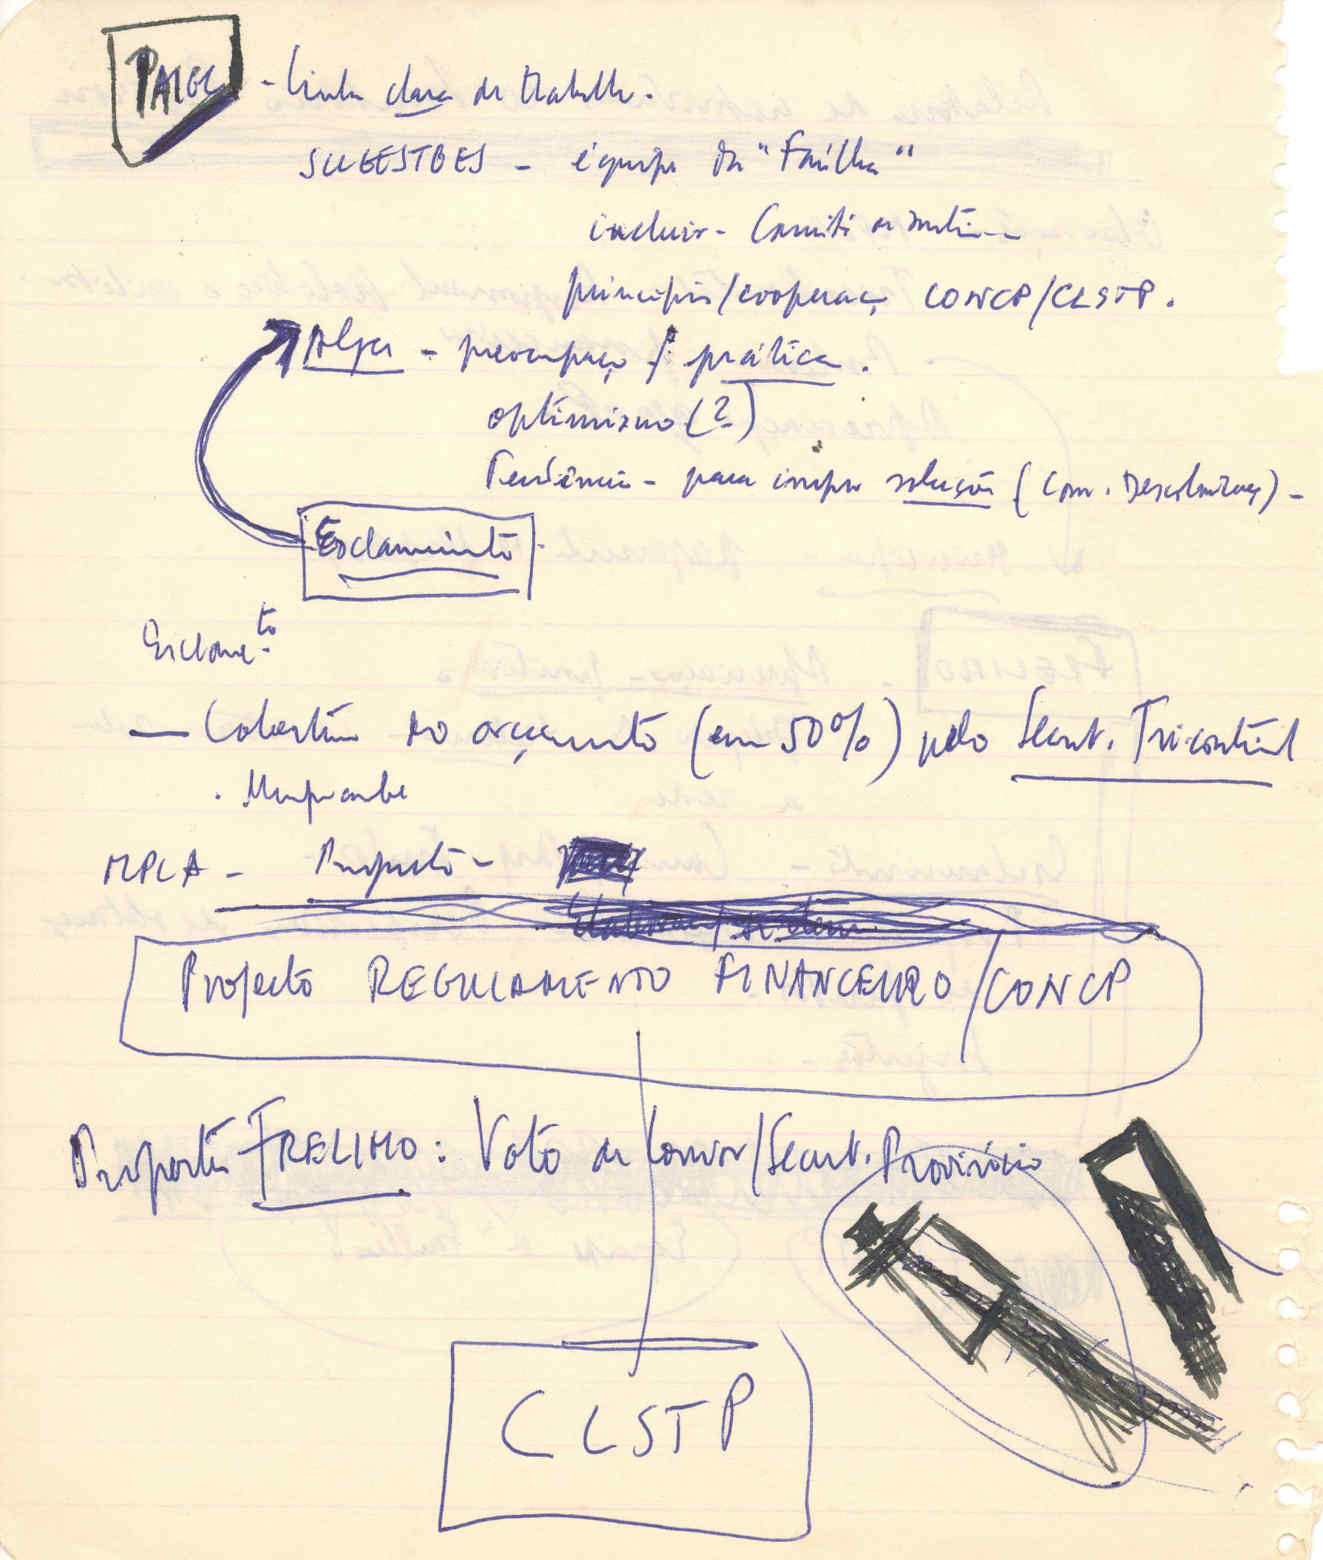 PAIGC - Linha clara de trabalho.
SUGESTÕES - equipa da "Faúlha"
incluir - Comité
princípio/cooperaç CONCP/CLSTP.
Alger - preocupaç prática.
optimismo (?)
Tendência - para impor solução (Com. Descolonizaç) -
Esclamento
Esclamto
— Cobertura no orçamento (em 50%) pelo Secret. Tricontintal
MPLA - Proposta -
Projecto REGULAMENTO FINANCEIRO/CONCP
Proposta FRELIMO: Voto de louvor/Secret. Provisório
CLSTP